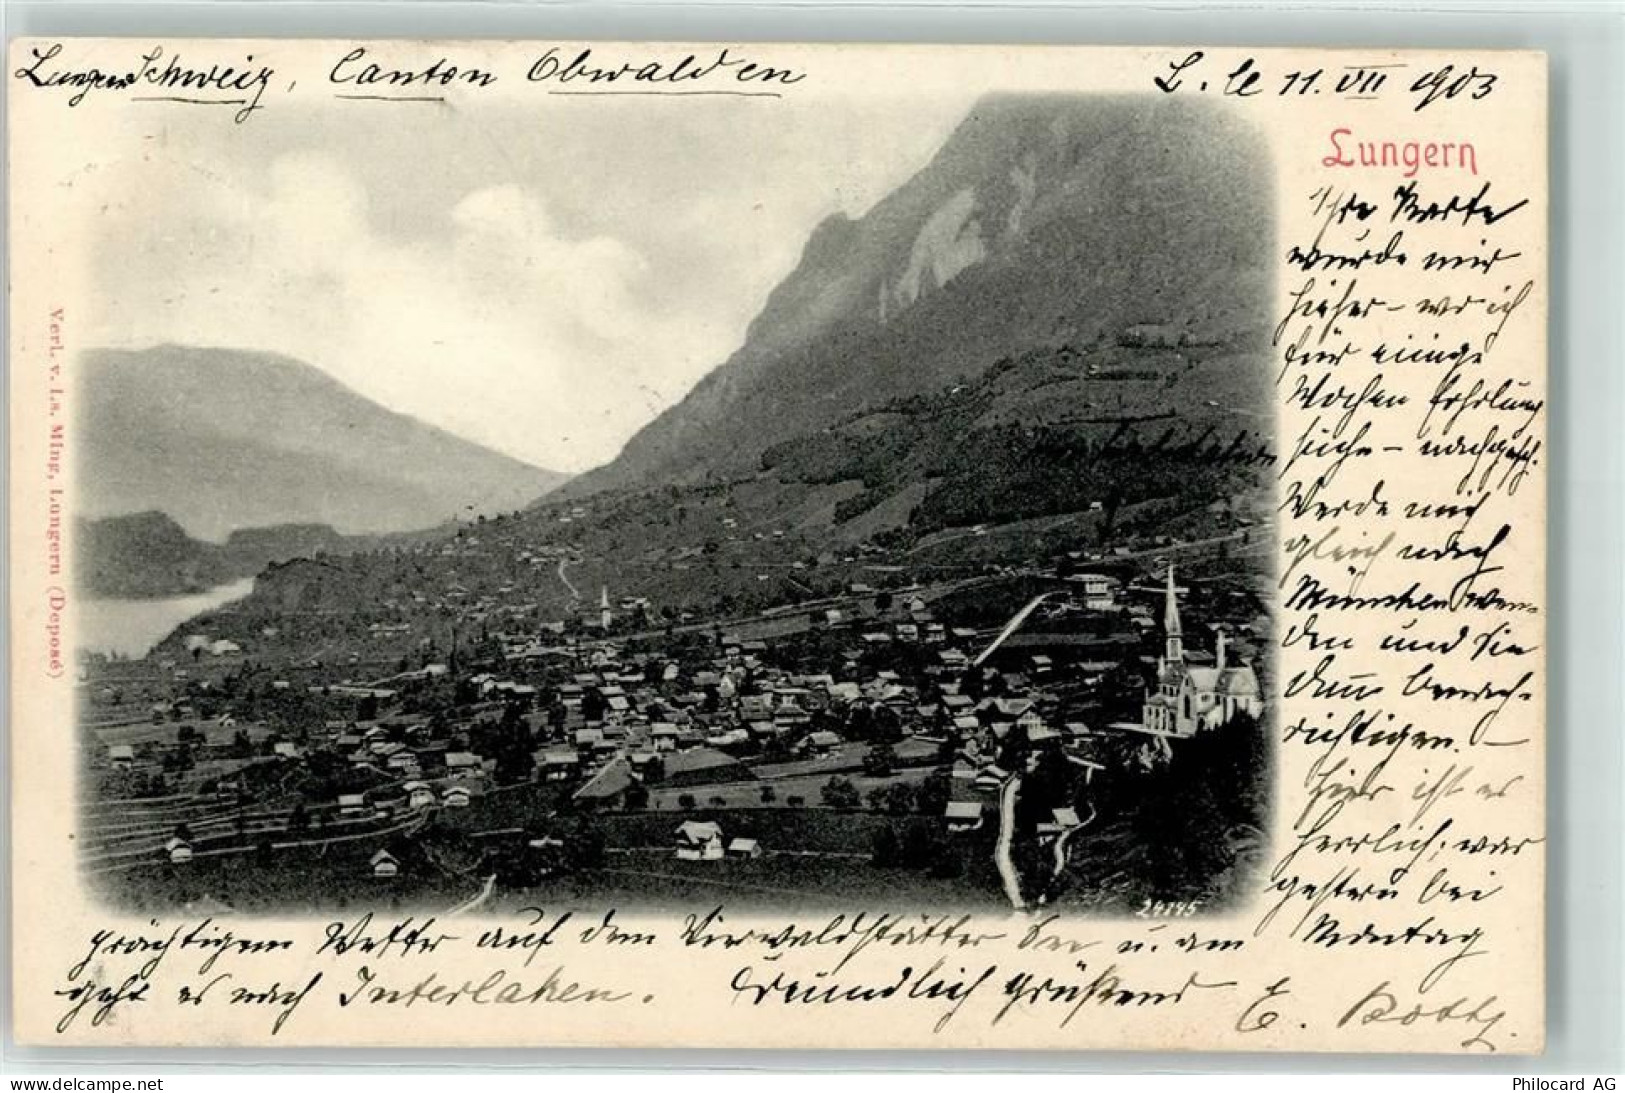 Lungern Schweiz, Canton Obwalden
L. le 11. VII 1903
Lungern
Ihre Karte
wurde mir
hieher - wo ich
für einige
Wochen Erholung
suche - nachgesch.
Werde mich
gleich nach
München wen-
den und Sie
dann benach-
richtigen. -
Hier ist es
herrlich; war
gestern bei
prächtigem Wetter auf dem Vierwaldstätter See u. am Montag
geht es nach Interlaken. Freundlich grüßend
E.
Verl. v. Ls. Ming, Lungern (Deposé)
24845
Philocard AG
www.delcampe.net